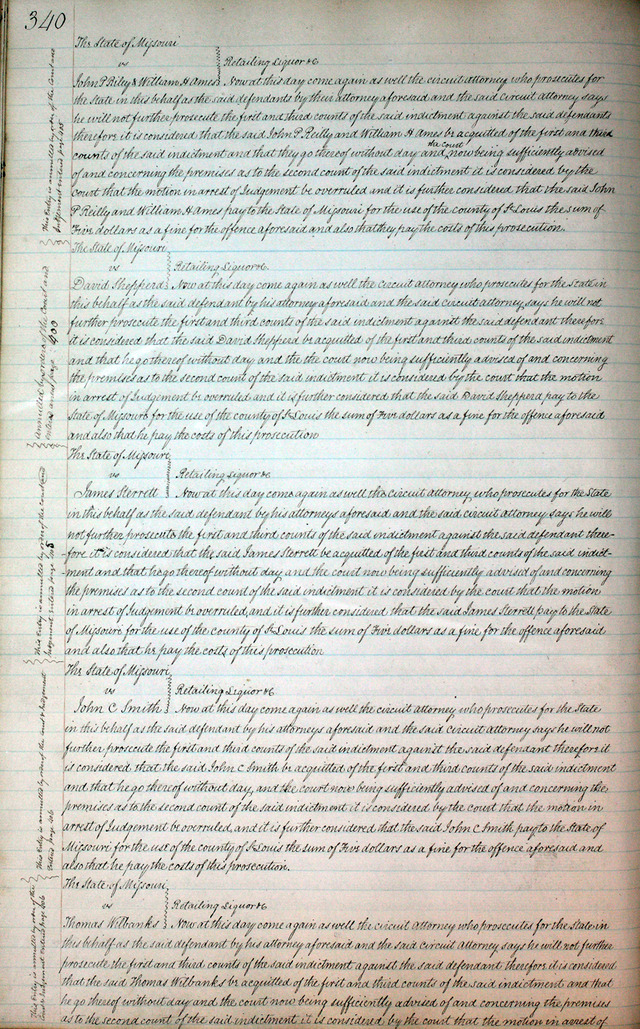 340
The State of Missouri
vs
Retailing Liquor &c
John P Riley & William H Ames Now at this day come again as well the circuit attorney who prosecutes for
the State in this behalf as the said defendants by their attorney aforesaid and the said circuit attorney says
he will not further prosecute the first and third counts of the said indictment against the said defendants
therefore it is considered that the said John P. Reilly and William H Ames be acquitted of the first and third
counts of the said indictment and that they go thereof without day and the Court now being sufficiently advised
of and concerning the premises as to the second count of the said indictment it is considered by the
Court that the motion in arrest of Judgement be overruled and it is further considered that the said John
P Reilly and William H Ames pay to the State of Missouri for the use of the county of St Louis the sum of
Five dollars as a fine for the offence aforesaid and also that they pay the costs of this prosecution.
This Entry is annulled by order of the Court and
Judgement entered page
The State of Missouri
vs
Retailing Liquor &c.
David Shepperd Now at this day come again as well the circuit attorney who prosecutes for the State in
this behalf as the said defendant by his attorney aforesaid and the said circuit attorney says he will not
further prosecute the first and third counts of the said indictment against the said defendant therefore
it is considered that the said David Shepperd be acquitted of the first and third counts of the said indictment
and that he go thereof without day and the the court now being sufficiently advised of and concerning
the premises as to the second count of the said indictment it is considered by the court that the motion
in arrest of Judgement be overruled and it is further considered that the said David Shepperd pay to the
State of Missouri for the use of the county of St Louis the sum of Five dollars as a fine for the offence aforesaid
and also that he pay the costs of this prosecution
annulled by order of the Court and
entered page
The State of Missouri
vs
Retailing Liquor &c
James Sterrett Now at this day come again as well the circuit attorney who prosecutes for the State
in this behalf as the said defendant by his attorneys aforesaid and the said circuit attorney says he will
not further prosecute the first and third counts of the said indictment against the said defendant there-
fore it is considered that the said James Sterrett be acquitted of the first and third counts of the said indict-
ment and that he go thereof without day and the court now being sufficiently advised of and concerning
the premises as to the second count of the said indictment it is considered by the court that the motion
in arrest of Judgement be overruled, and it is further considered that the said James Sterrett pay to the State
of Missouri for the use of the county of St Louis the sum of Five dollars as a fine for the offence aforesaid
and also that he pay the costs of this prosecution
This Entry is annulled by order of the court and
Judgement entered page
The State of Missouri
vs
Retailing Liquor &c.
John C Smith Now at this day come again as well the circuit attorney who prosecutes for the State
in this behalf as the said defendant by his attorneys aforesaid and the said circuit attorney says he will not
further prosecute the first and third counts of the said indictment against the said defendant therefore it
is considered that the said John C Smith be acquitted of the first and third counts of the said indictment
and that he go thereof without day, and the court now being sufficiently advised of and concerning the
premises as to the second count of the said indictment it is considered by the court that the motion in
arrest of Judgement be overruled, and it is further considered that the said John C Smith pay to the State of
Missouri for the use of the county of St Louis the sum of Five dollars as a fine for the offence aforesaid and
also that he pay the costs of this prosecution.
This Entry is annulled by order of the court & Judgement
Entered page 406
The State of Missouri
vs
Retailing Liquor &c
Thomas Wilbanks Now at this day come again as well the circuit attorney who prosecutes for the State in
this behalf as the said defendant by his attorney aforesaid and the said circuit attorney says he will not further
prosecute the first and third counts of the said indictment against the said defendant therefore it is considered
that the said Thomas Wilbanks be acquitted of the first and third counts of the said indictment and that
he go thereof without day and the court now being sufficiently advised of and concerning the premises
as to the second count of the said indictment it is considered by the court that the motion in arrest of
This Entry is annulled by order of the
Court Judgement entered page 406